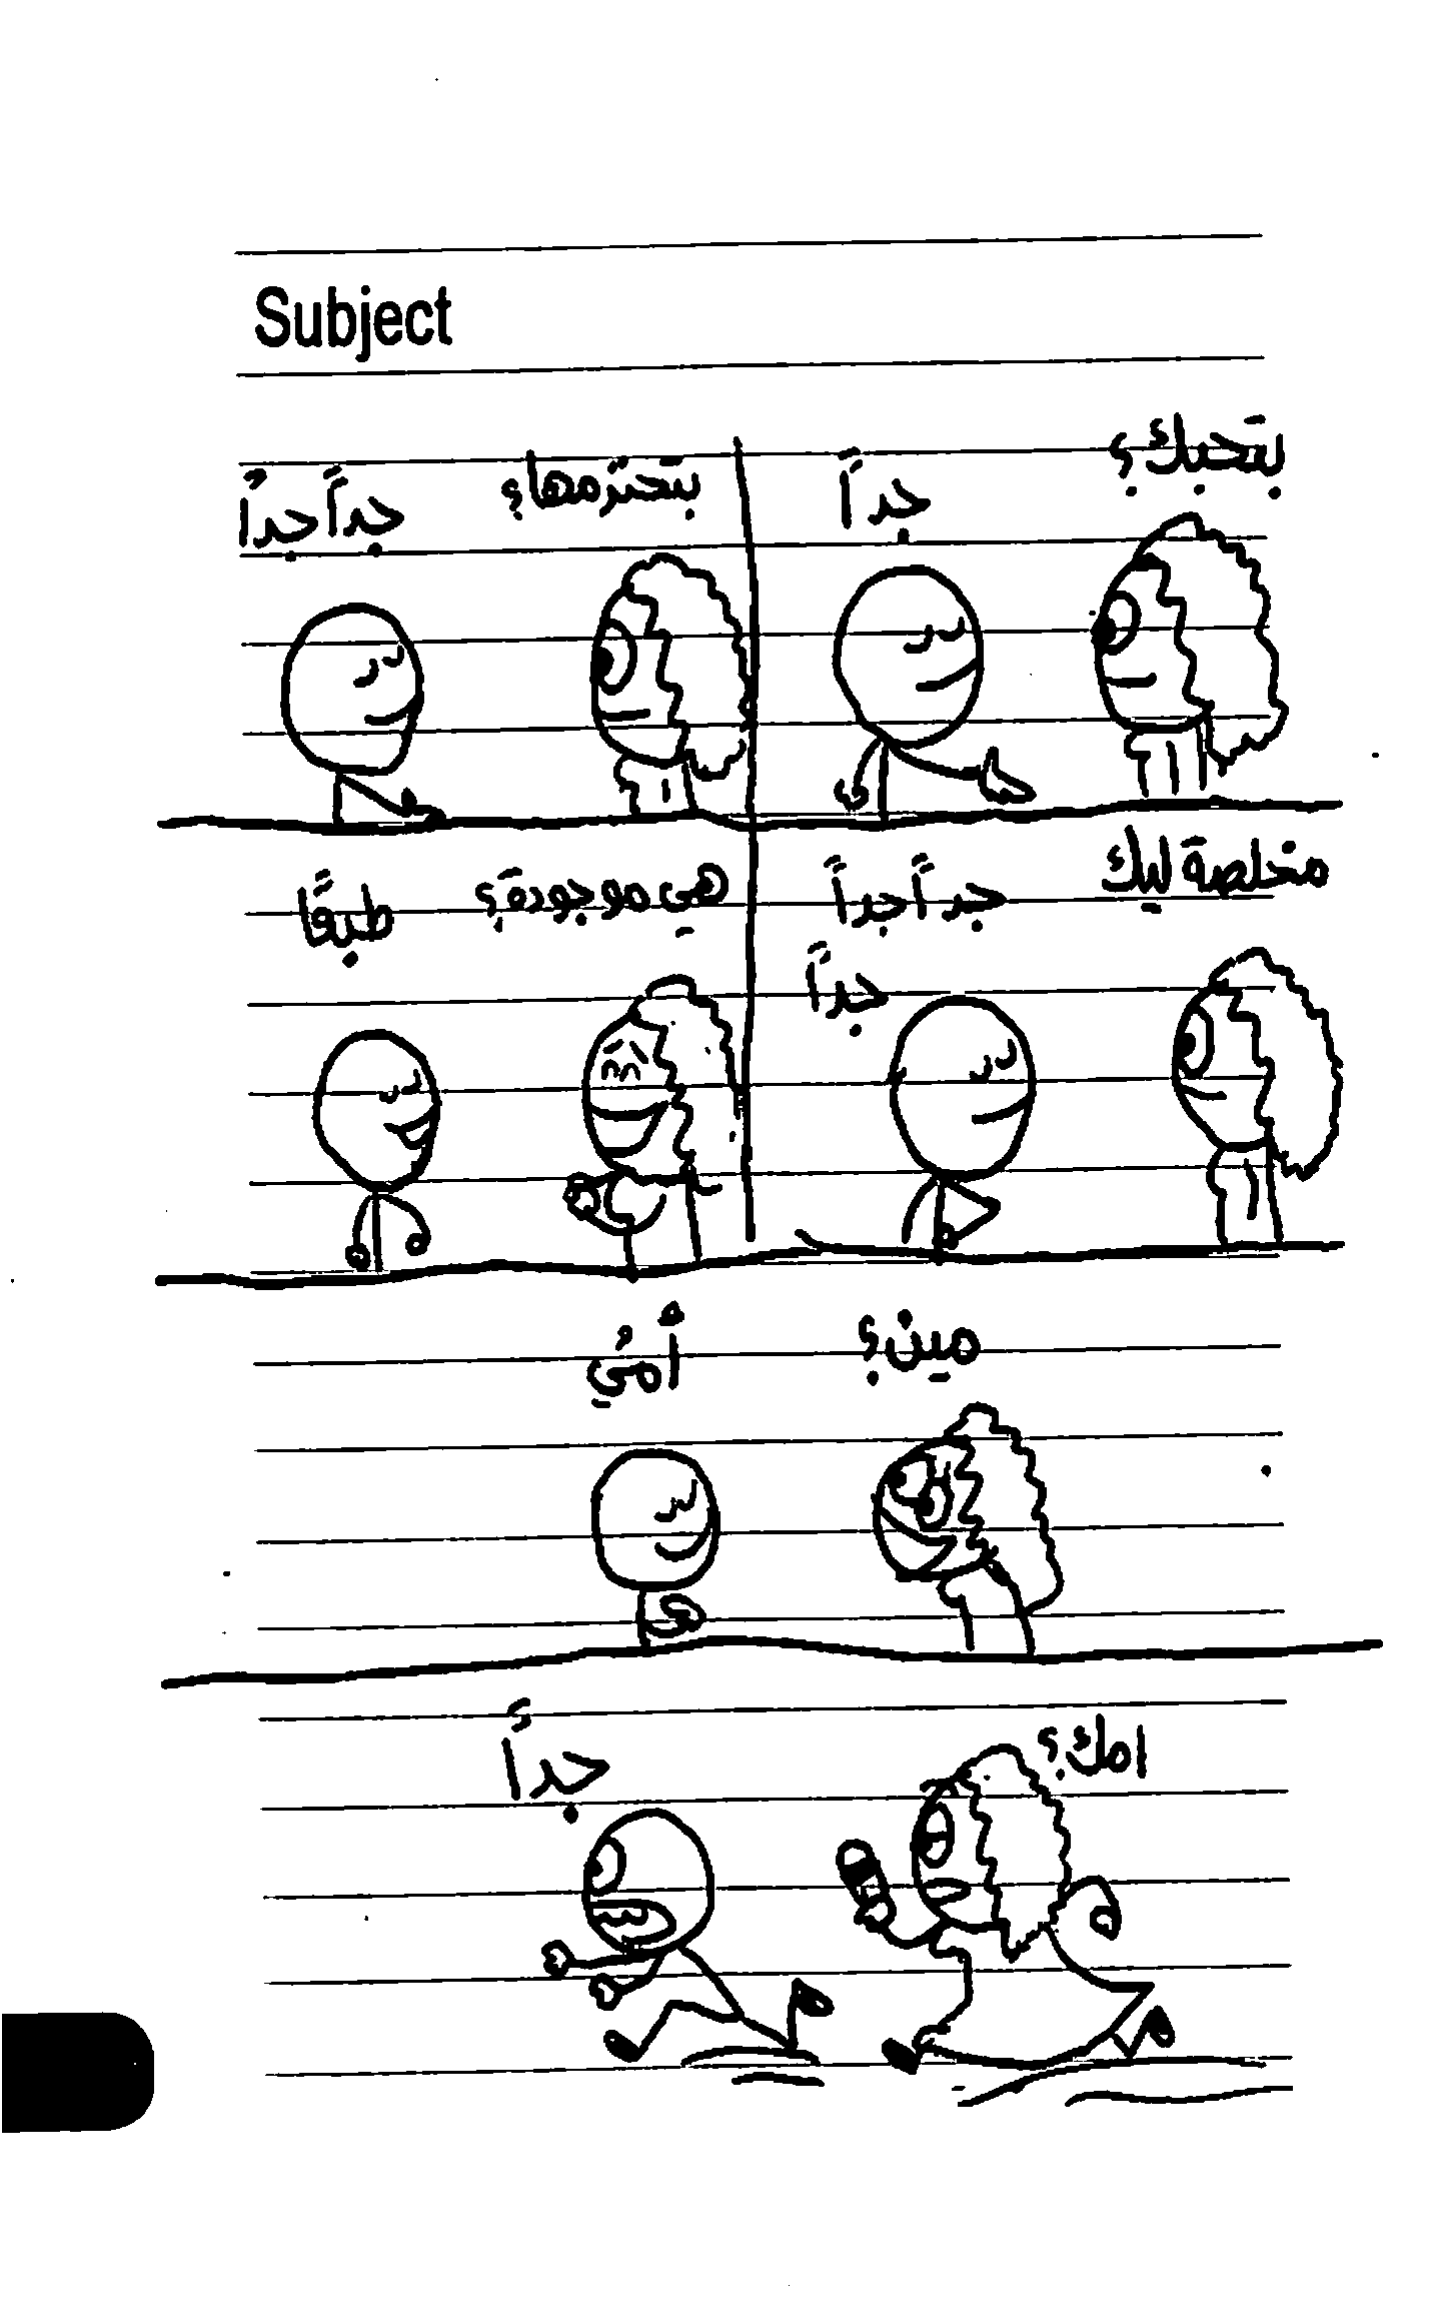 Subject
بتحبك؟
جداً
بتحترمها؟
جداً جداً
مخلصة ليك
جداً جداً
جداً
هي موجودة؟
طبعًا
مين؟
أمي
امك؟
جداً